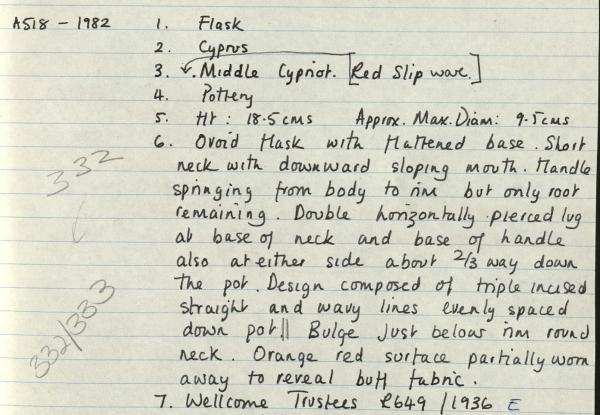 A518 - 1982
1. Flask
2. Cyprus
3. Middle Cypriot. [Red Slip ware.]
4. Pottery
5. Ht: 18.5cms Approx. Max. Diam: 9.5cms
6. Ovoid flask with flattened base. Short
neck with downward sloping mouth. Handle
springing from body to rim but only root
remaining. Double horizontally pierced lug
at base of neck and base of handle
also at either side about 2/3 way down
the pot. Design composed of triple incised
straight and wavy lines evenly spaced
down pot|| Bulge just below rim round
neck. Orange red surface partially worn
away to reveal buff fabric.
7. Wellcome Trustees R649 / 1936 E
332
332/333